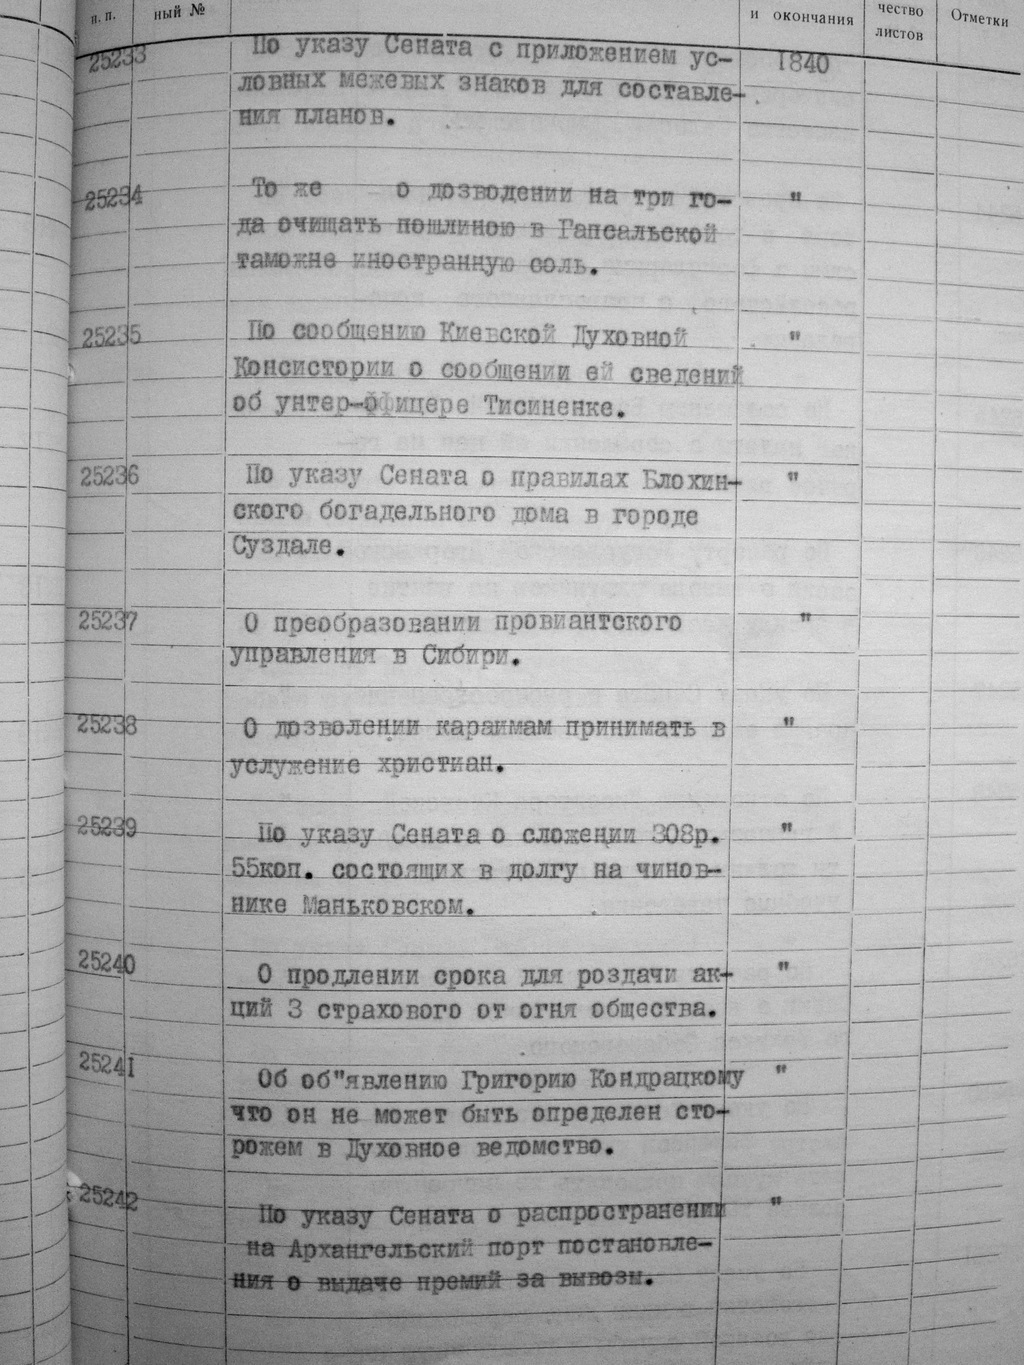 п. п. ный № и окончания чество листов Отметки
25233 По указу Сената с приложением ус- 1840
ловных межевых знаков для составле-
ния планов.
25234 То же о дозволении на три го- "
да очищать пошлиною в Гапсальской
таможне иностранную соль.
25235 По сообщению Киевской Духовной "
Консистории о сообщении ей сведений
об унтер-офицере Тисиненке.
25236 По указу Сената о правилах Блохин- "
ского богадельного дома в городе
Суздале.
25237 О преобразовании провиантского "
управления в Сибири.
25238 О дозволении караимам принимать в "
услужение христиан.
25239 По указу Сената о сложении 308р. "
55коп. состоящих в долгу на чинов-
нике Маньковском.
25240 О продлении срока для роздачи ак- "
ций 3 страхового от огня общества.
25241 Об об"явлению Григорию Кондрацкому "
что он не может быть определен сто-
рожем в Духовное ведомство.
25242 По указу Сената о распространении "
на Архангельский порт постановле-
ния о выдаче премий за вывозы.